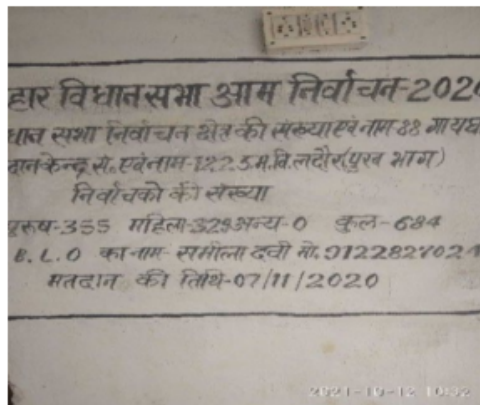 हार विधानसभा आम निर्वाचन-2020
धान सभा निर्वाचन क्षेत्र की संख्या एवं नाम 88 गायघ
दान केन्द्र सं. एवं नाम-122.उ.म.वि.लदौर(पुरब भाग)
निर्वाचको की संख्या
पुरूष-355 महिला-329 अन्य-0 कुल-684
B.L.O का नाम- समीला देवी मो.
मतदान की तिथि-07/11/2020
2021-10-12 10:32